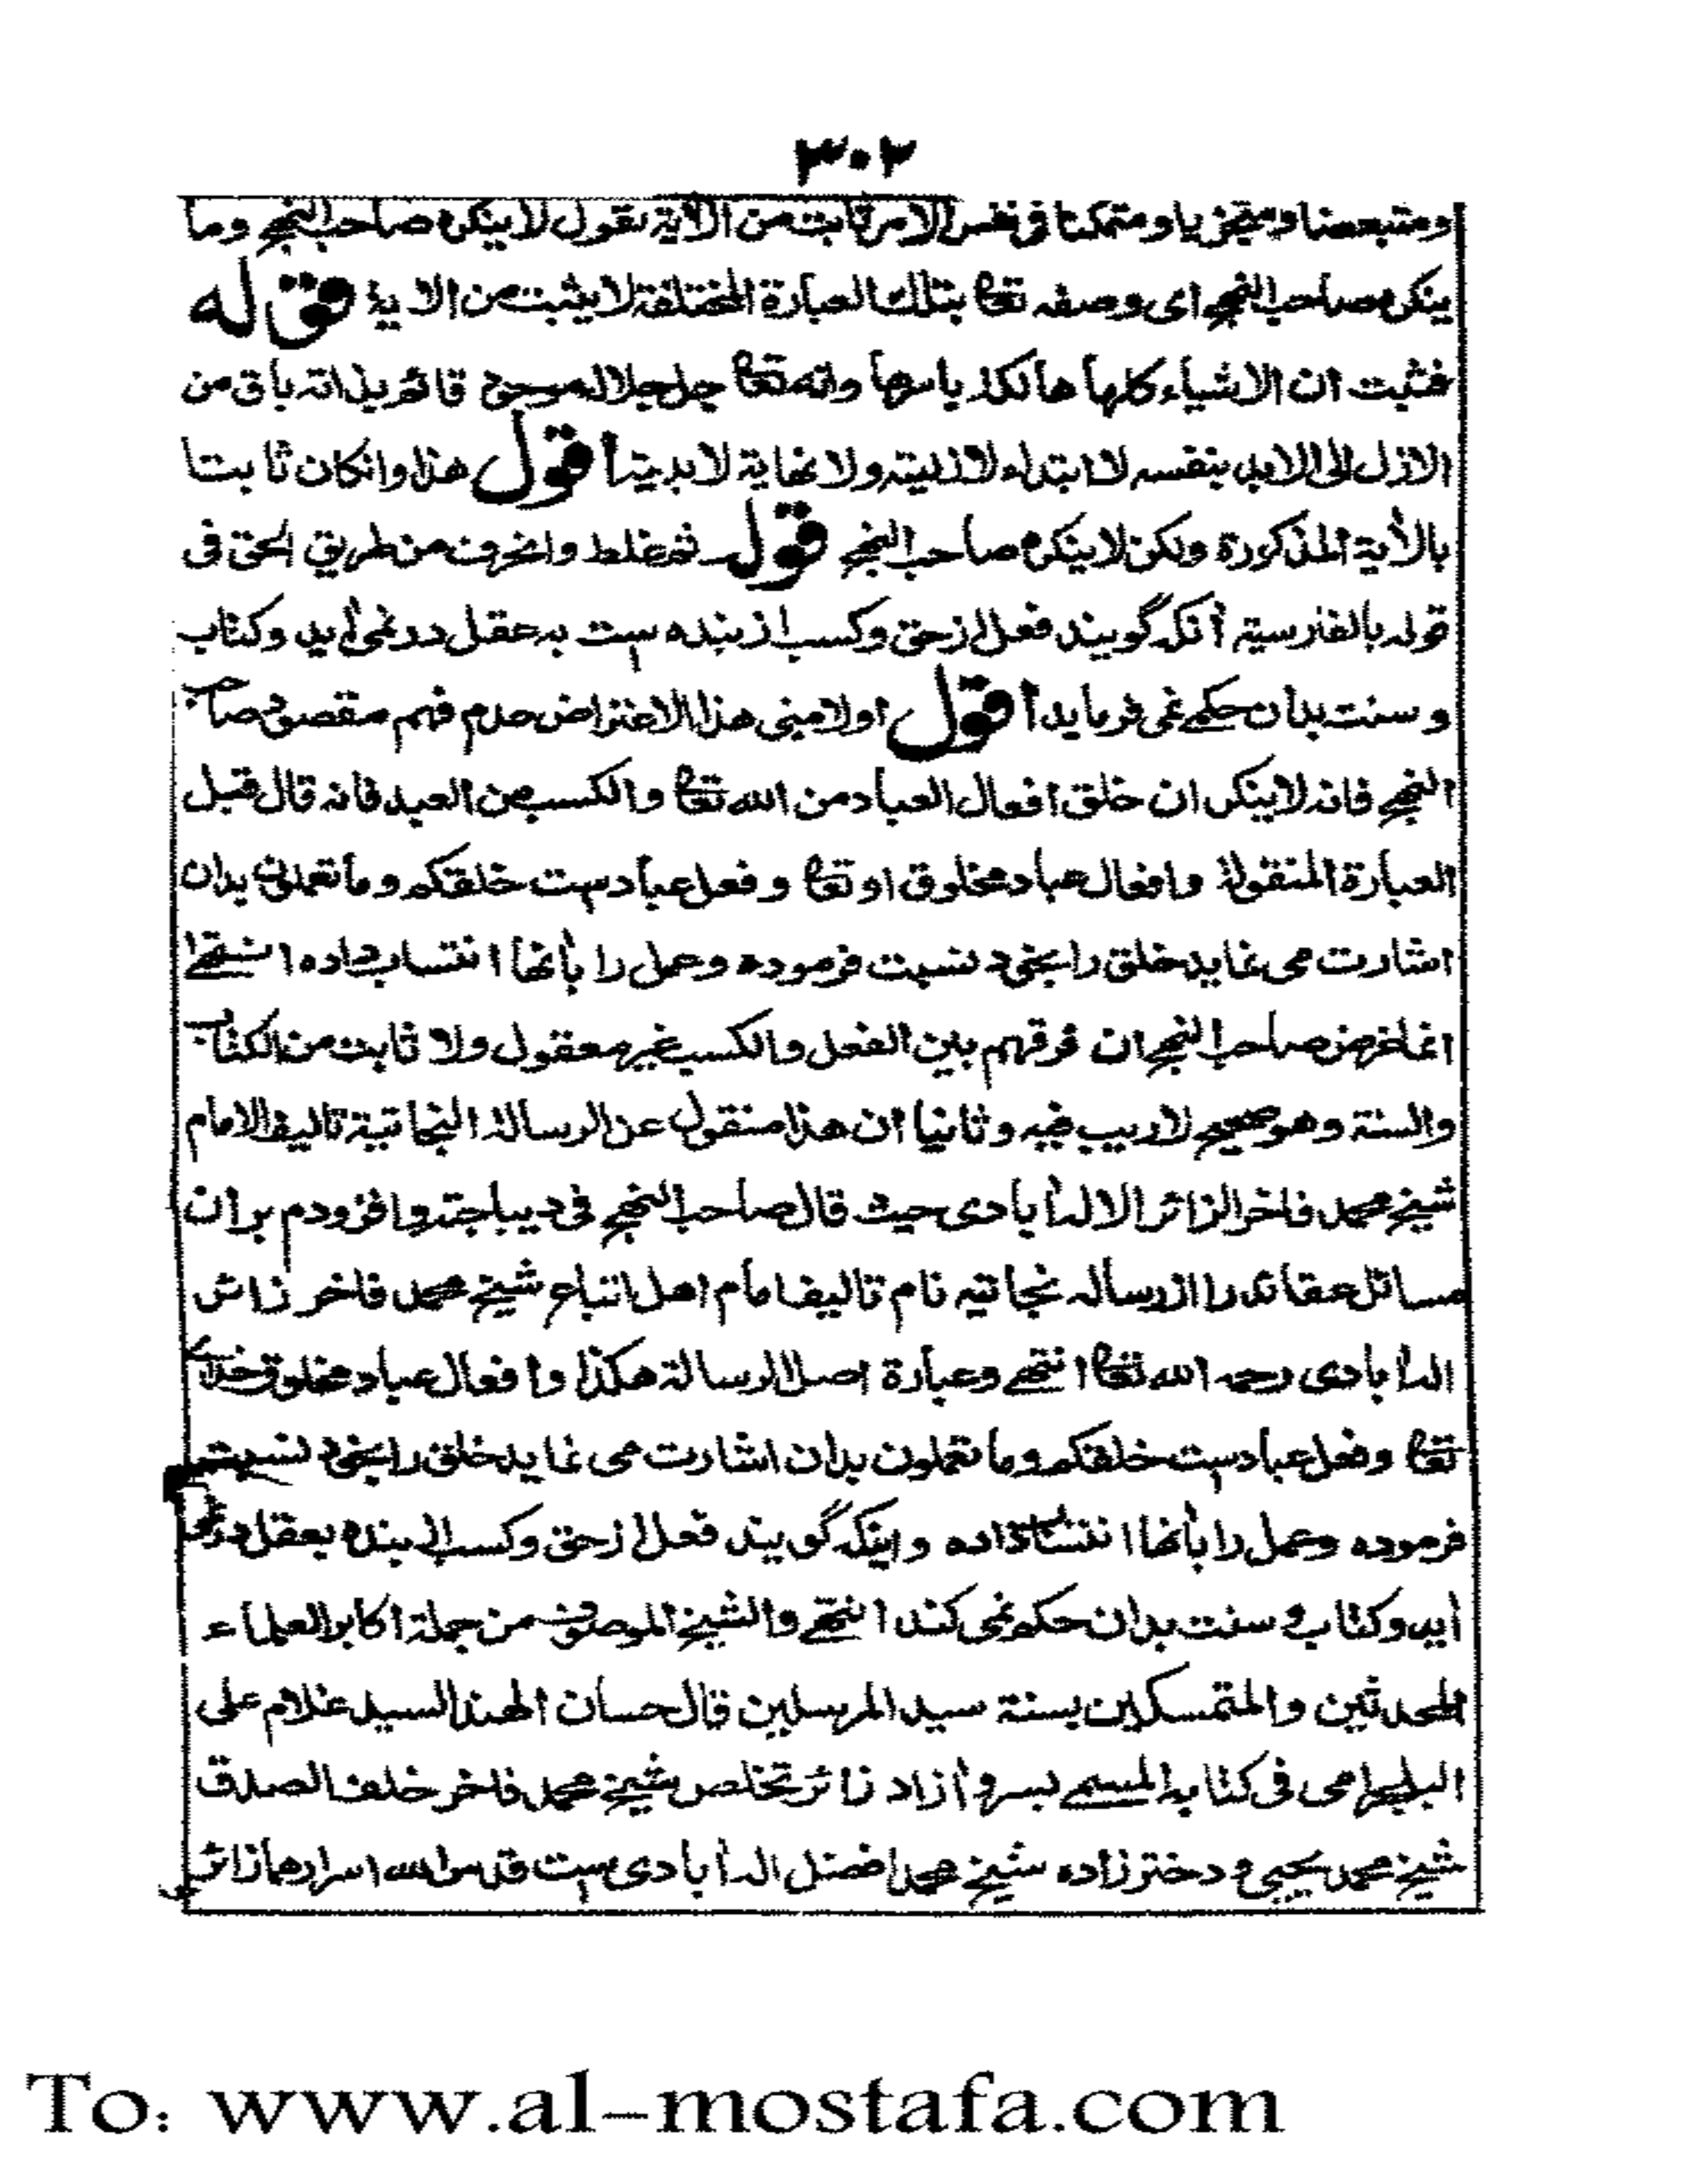 ٣٠٢
ومتبعضا ومتجزيا ومتمكنا فى نفس الامر ثابت من الآية نقول لا ينكره صاحب النهج وما
ينكره صاحب النهج اى وصفه تعالى بتلك العبارة المختلقة لا يثبت من الاية قوله
فثبت ان الاشياء كلها هالكة باسرها وانه تعالى جل جلاله موجود قائم بذاته باق من
الازل الى الابد بنفسه لا ابتداء لازليته ولا نهاية لابديته أقول هذا وانكان ثابتا
بالأية المذكورة ولكن لا ينكره صاحب النهج قوله ثم غلط وانحرف من طريق الحق فى
قوله بالفارسية أنكه گويند فعل از حق وكسب از بنده ست به عقل در نمى أيد وكتاب
و سنت بدان حكم نمى فرمايد أقول اولا مبنى هذا الاعتراض عدم فهم مقصود صاحب
النهج فانه لا ينكر ان خلق افعال العباد من الله تعالى والكسب من العبد فانه قال قبل
العبارة المنقولة وافعال عباد مخلوق او تعالى و فعل عباد ست خلقكم وما تعملون بدان
اشارت مى نمايد خلق را بخود نسبت فرموده وعمل را بأنها انتساب داده انتهى
انما غرض صاحب النهج ان فرقهم بين الفعل والكسب غير معقول ولا ثابت من الكتاب
والسنة وهو صحيح لا ريب فيه وثانيا ان هذا منقول عن الرسالة النجاتية تاليف الامام
شيخ محمد فاخر الزائر الاله أبادى حيث قال صاحب النهج فى ديباجته وافزودم بر ان
مسائل عقائد را از رساله نجاتيه نام تاليف امام اهل اتباع شيخ محمد فاخر زائر
اله أبادى رحمه الله تعالى انتهى وعبارة اصل الرسالة هكذا وافعال عباد مخلوق خداى
تعالى وفعل عباد ست خلقكم وما تعملون بدان اشارت مى نمايد خلق را بخود نسبت
فرموده وعمل را بأنها انتساب داده و اينكه گويند فعل از حق وكسب از بنده بعقل در نمى
ايد وكتاب و سنت بدان حكم نمى كند انتهى والشيخ الموصوف من جملة اكابر العلماء
المحدثين والمتمسكين بسنة سيد المرسلين قال حسان الهند السيد غلام على
البلجرامى فى كتابه المسمى بسرو أزاد زائر تخلص شيخ محمد فاخر خلف الصدق
شيخ محمد يحيى و دختر زاده شيخ محمد افضل اله أبادى ست قدس الله اسرارهما زائر
To: www.al-mostafa.com